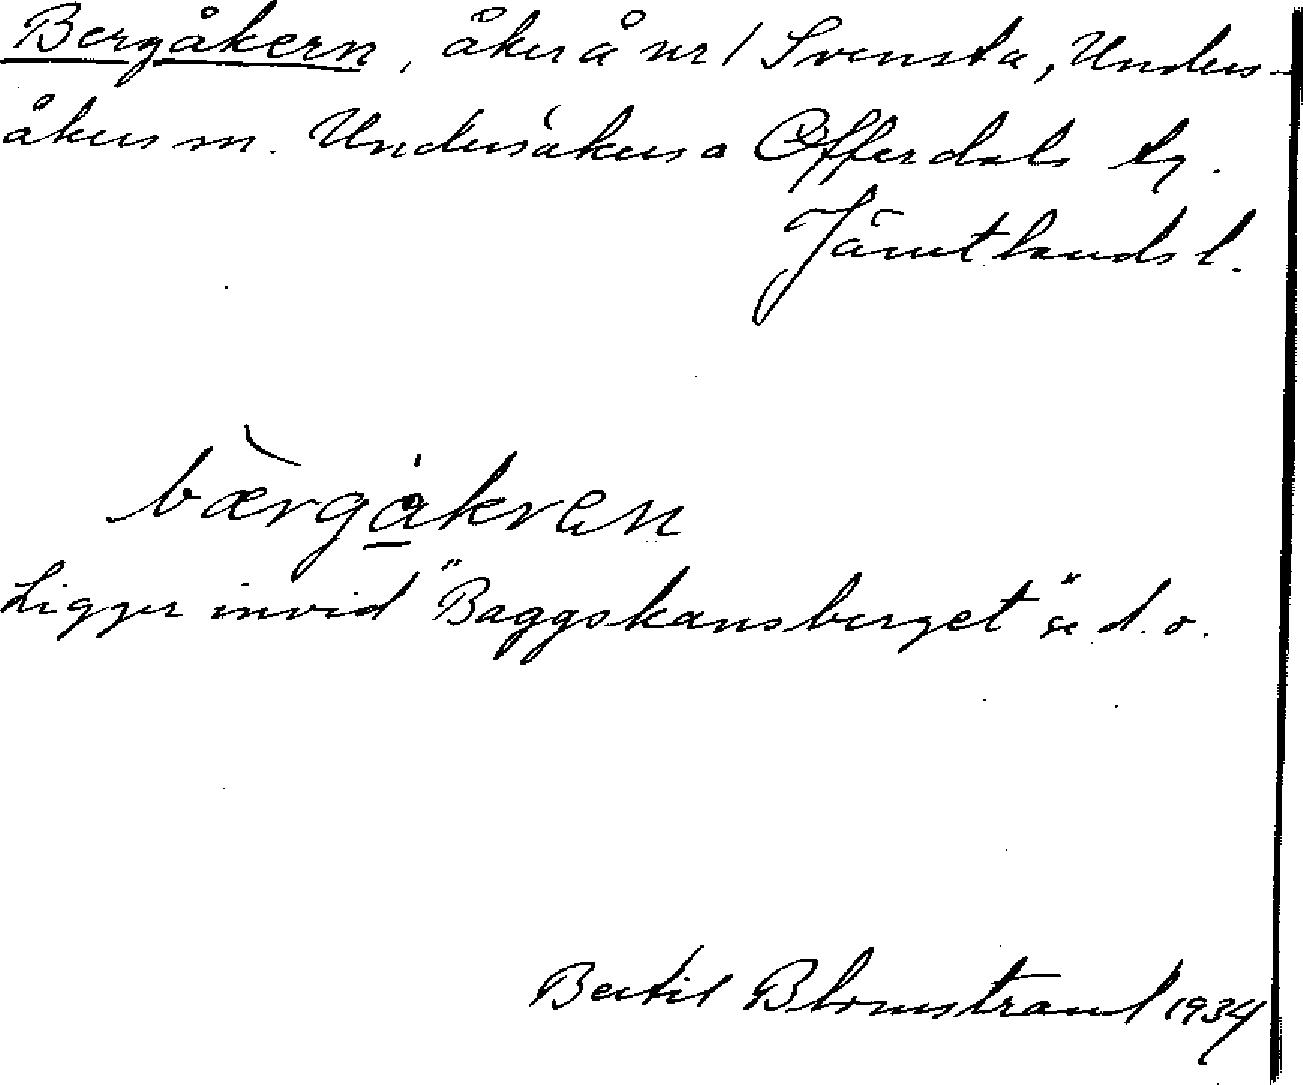 Bergåkern, åker å nr 1 Svensta, Unders-
åkers sn. Undersåkers o Offerdals tg.
Jämtlands l.
bærgåkren
Ligger invid "Baggskansberget" se d.o.
Bertil Blomstrand 1934